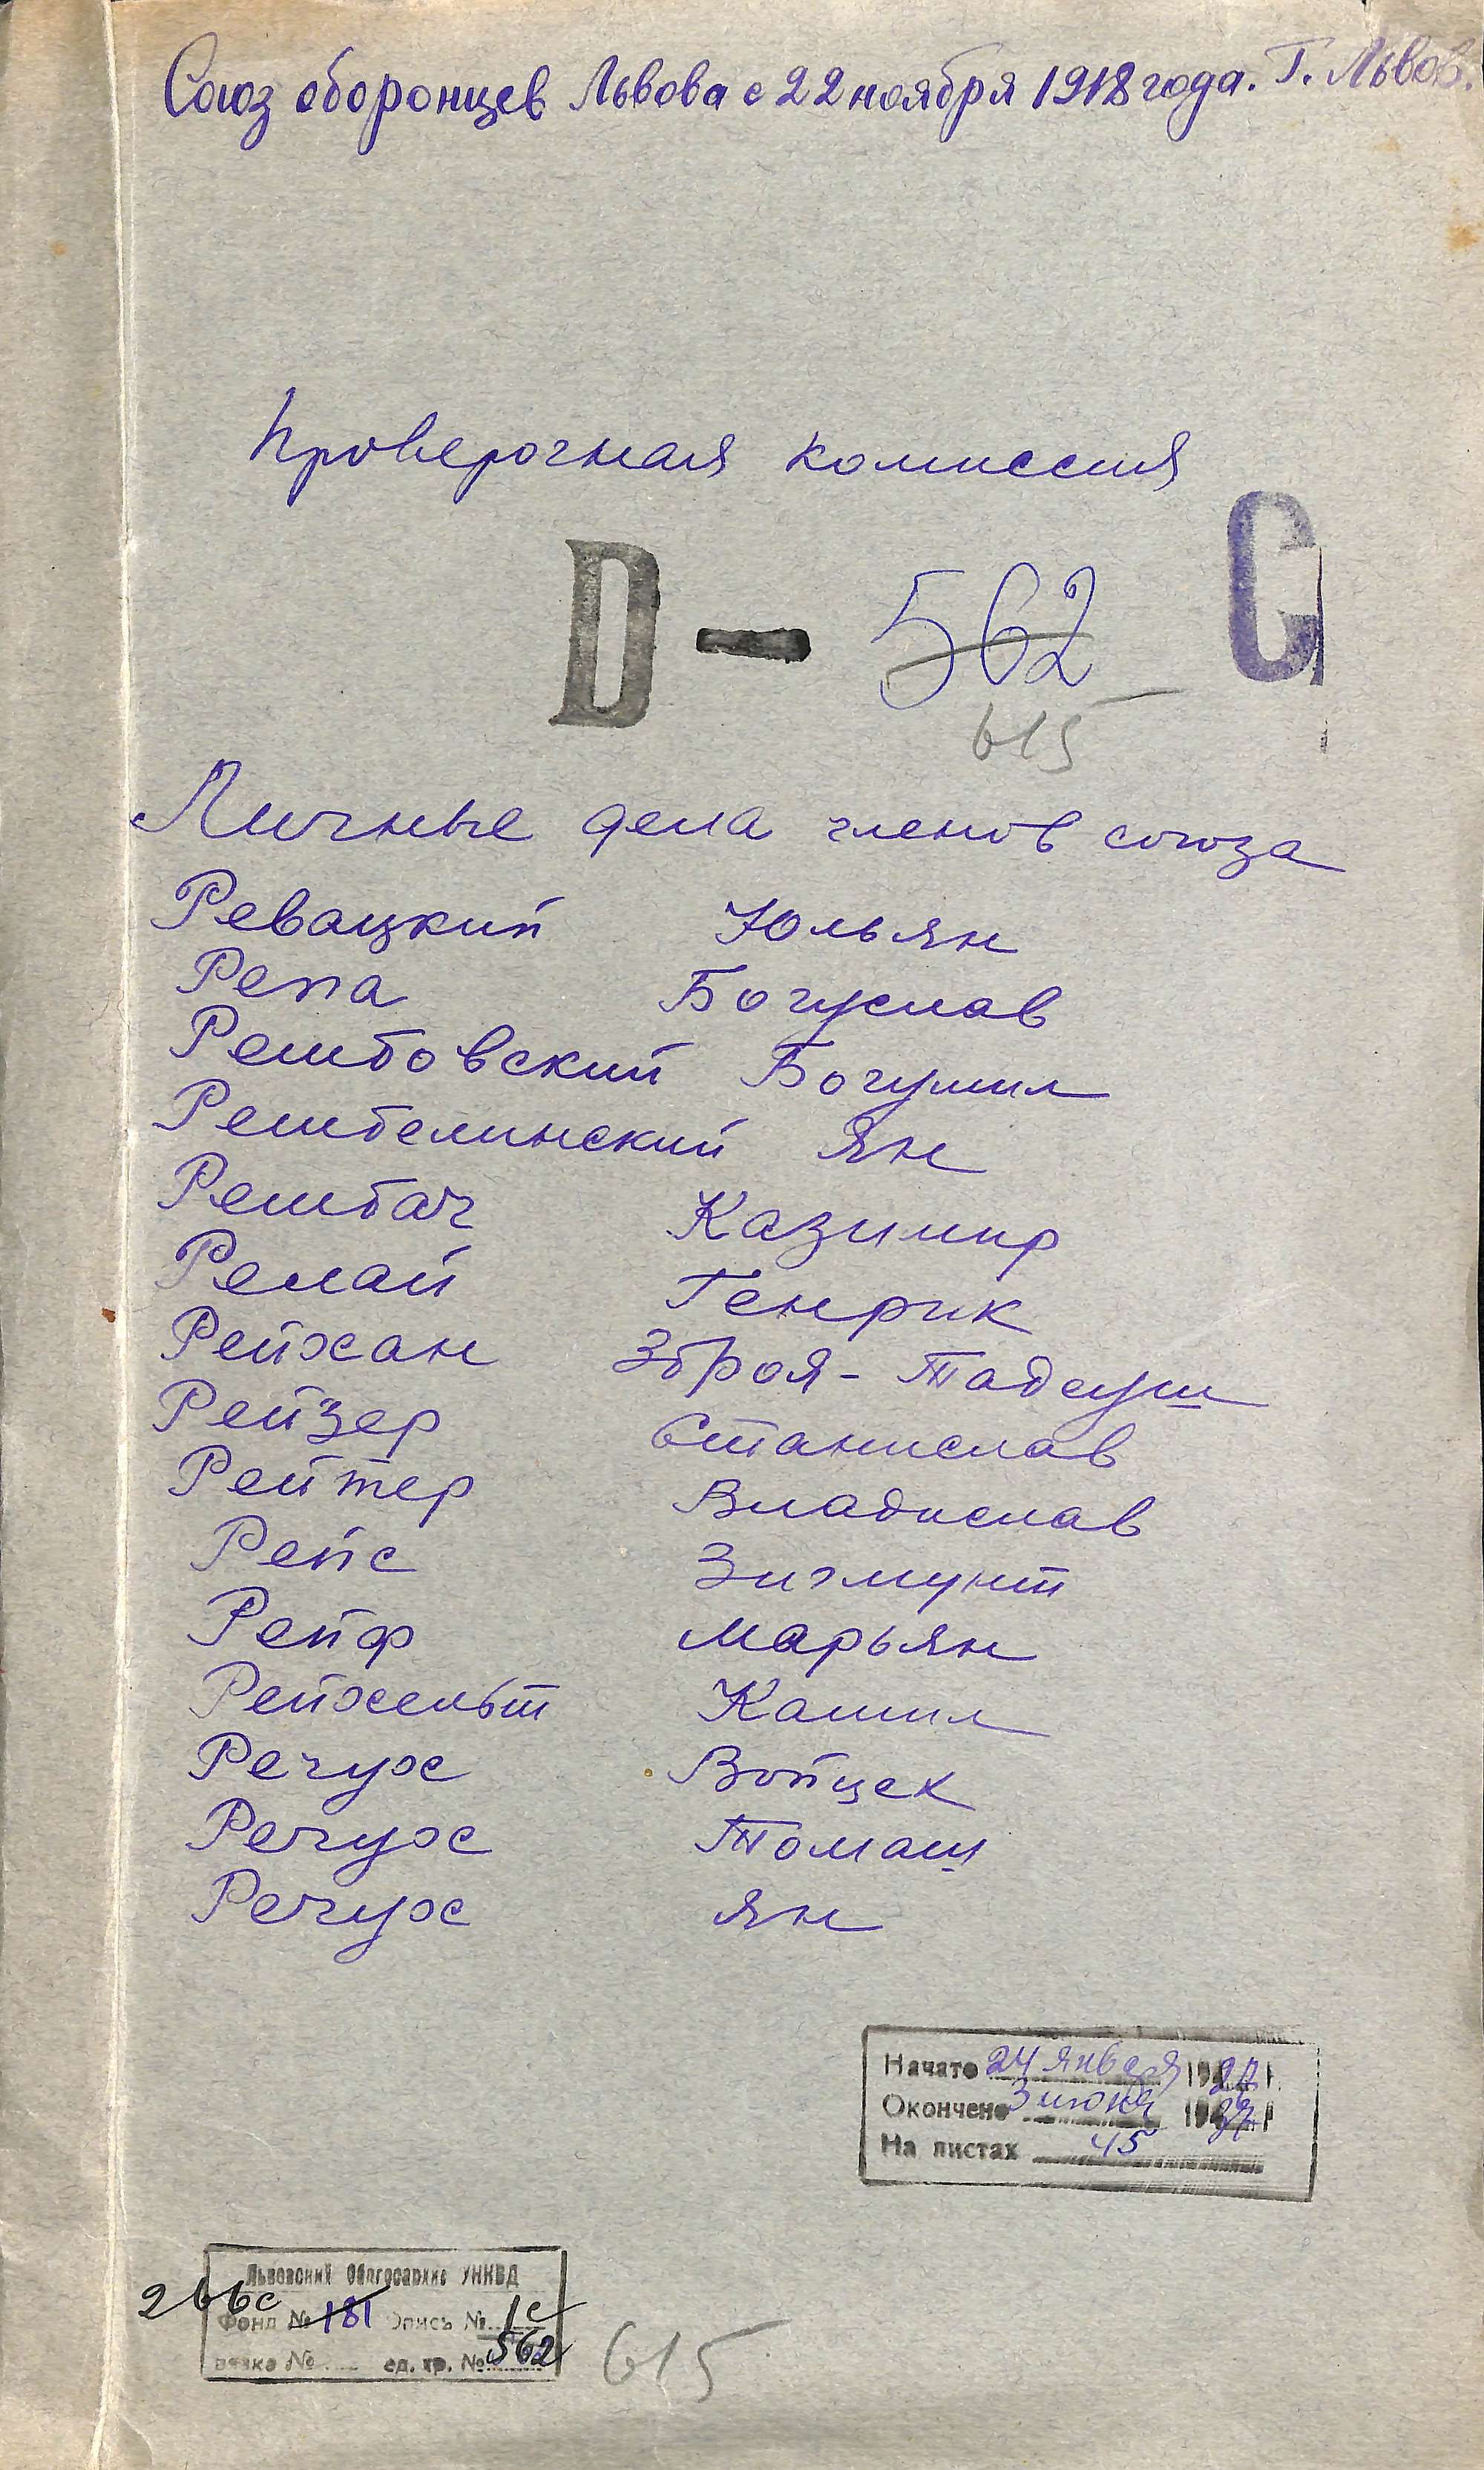 Союз оборонцев Львова с 22 ноября 1918 года. Г. Львов.
Проверочная комиссия
D — 562 C
615
Личные дела членов союза
Ревацкий Юльян
Репа Богуслав
Рембовский Богумил
Рембелинский Ян
Рембач Казимир
Ремай Генрик
Рейхан Зброя-Тадеуш
Рейзер Станислав
Рейтер Владислав
Рейс Зигмунт
Рейф Марьян
Рейхельт Камил
Речух Войцек
Речух Томаш
Речух Ян
Начато 24 января 19
Окончено 3 июня 19
На листах 45
Львовский Облгосархив УНКВД
266с Фонд № 181 Опись № 1с
вязка № ед. хр. № 562
615